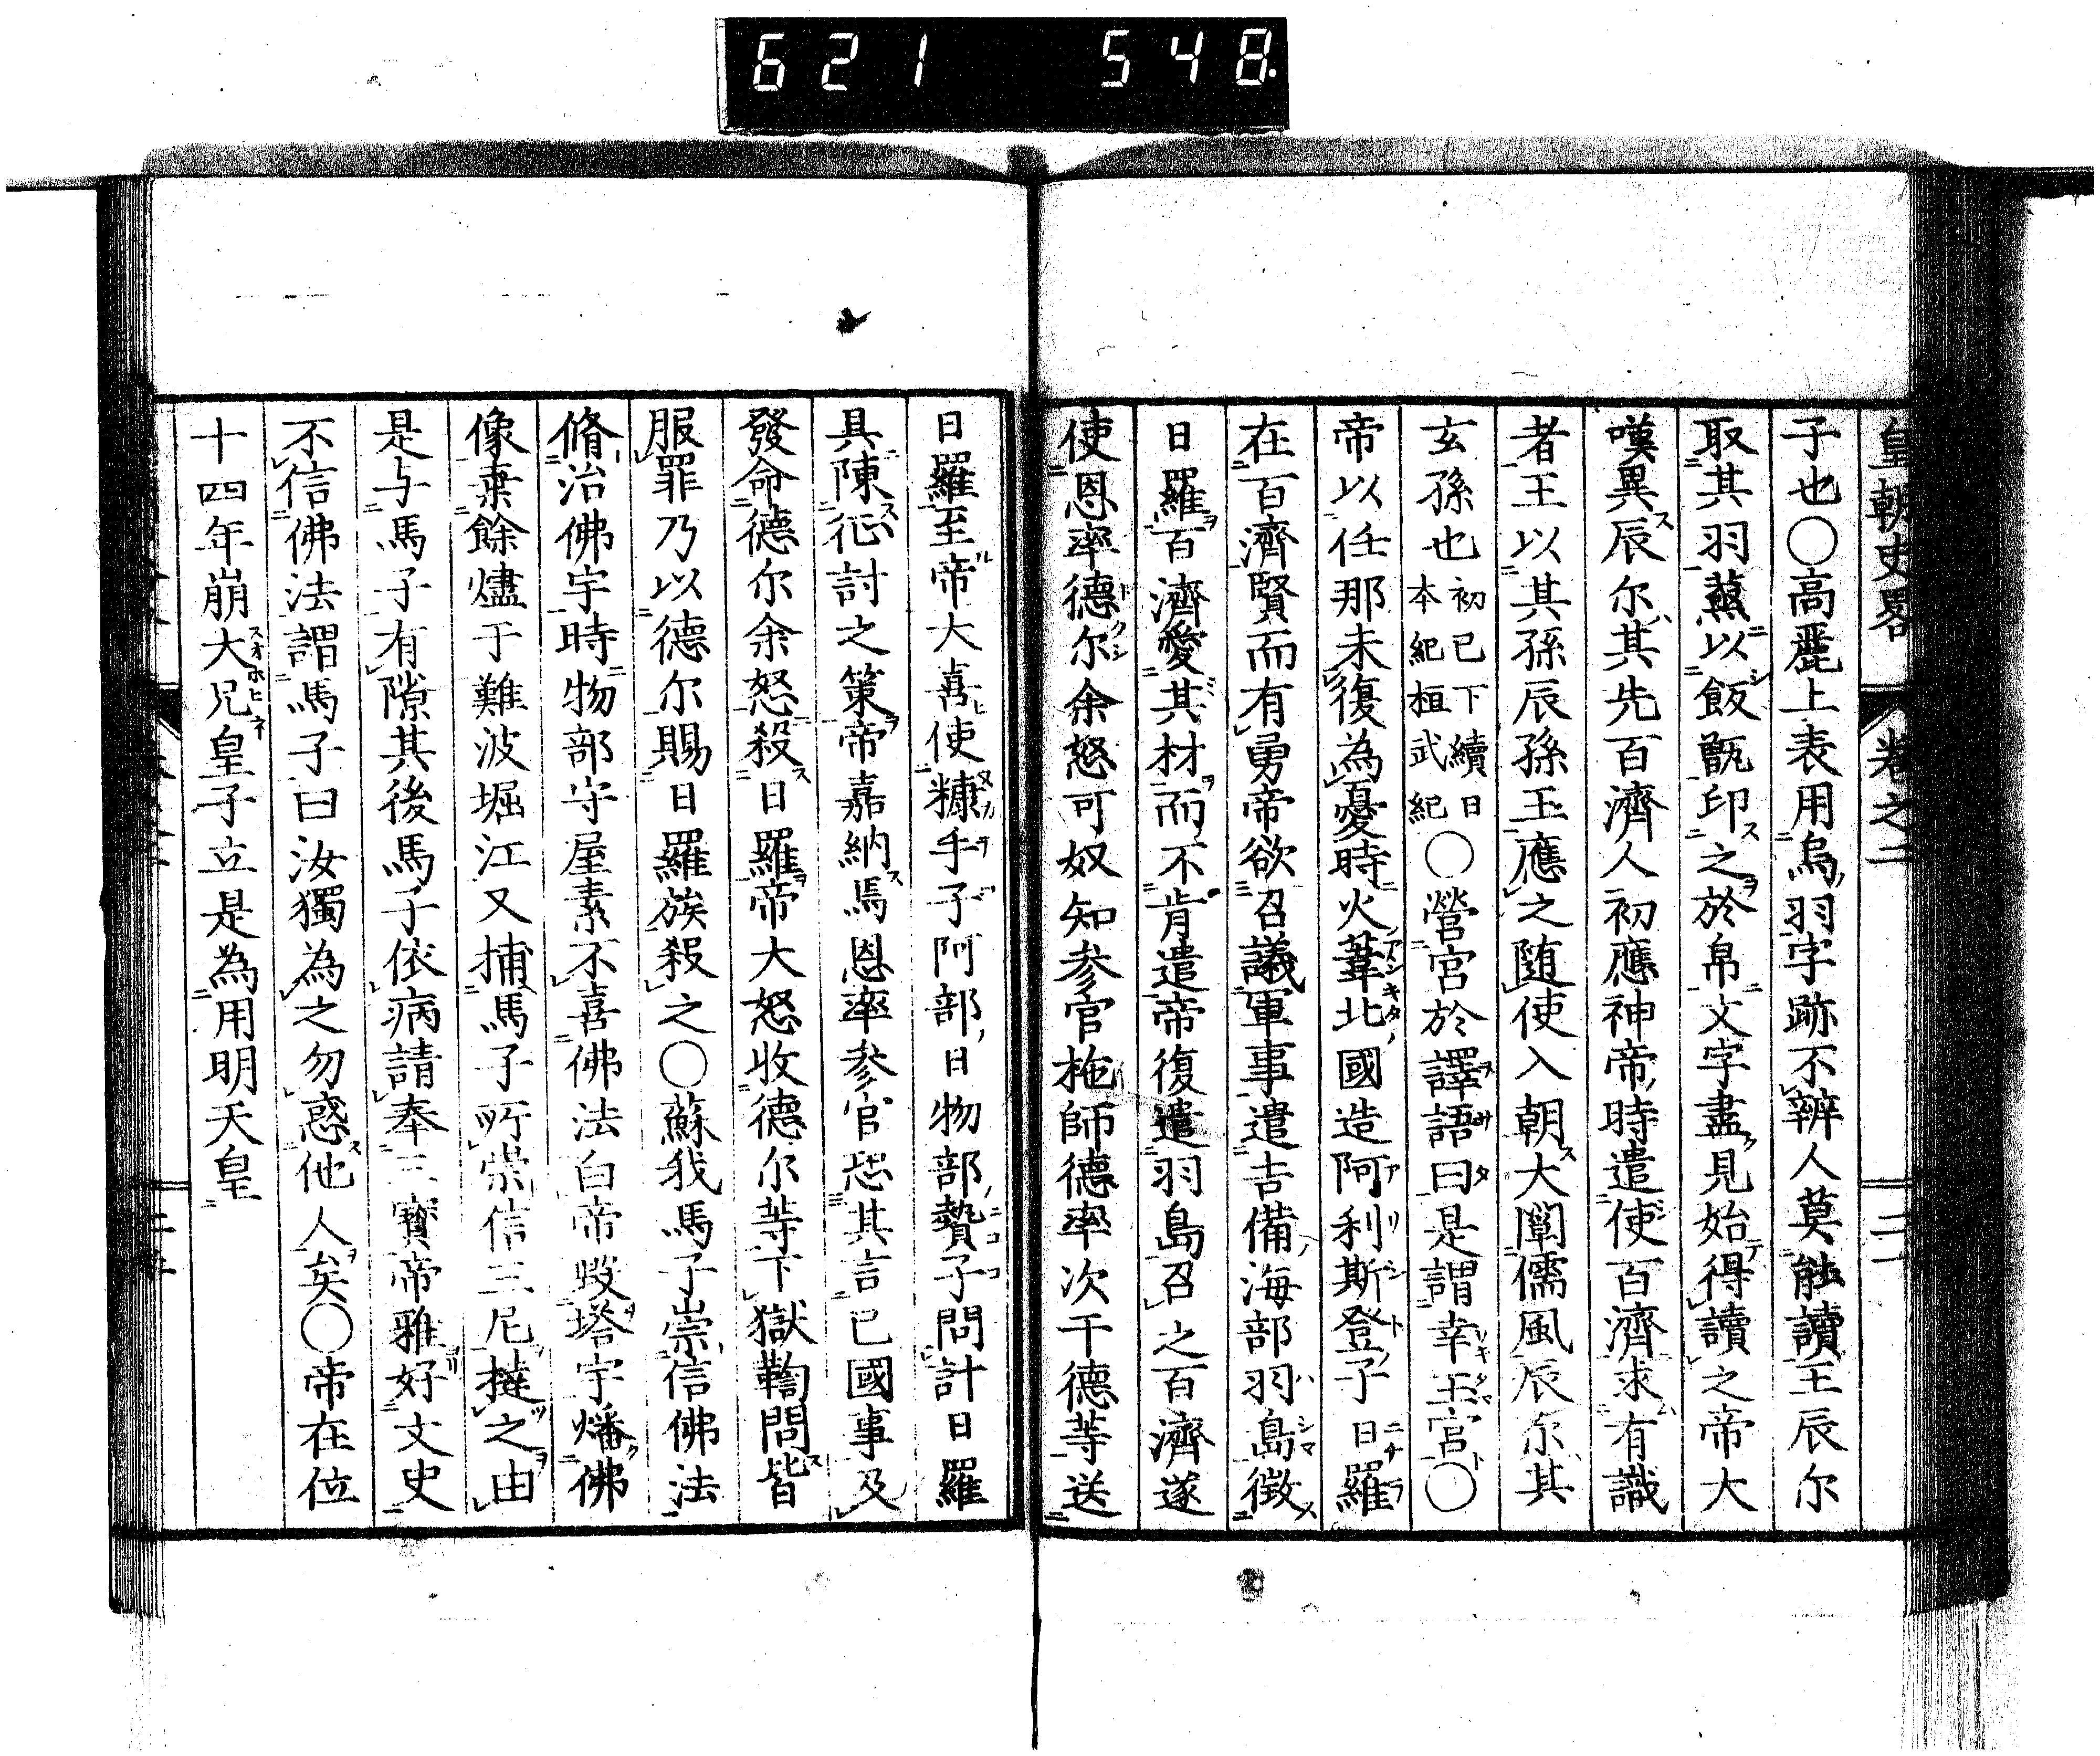 621 548
皇朝史畧 卷之二 二一
子也○高麗上表用烏羽字跡不辨人莫能讀王辰尔
取其羽蒸以飯甑印之於帛文字盡見始得讀之帝大
嘆異辰尔其先百濟人初應神帝時遣使百濟求有識
者王以其孫辰孫王應之随使入朝大闡儒風辰尔其
玄孫也初已下續日本紀桓武紀○營宮於譯語曰是謂幸玉宮○
帝以任那未復為憂時火葦北國造阿利斯登子日羅
在百濟賢而有勇帝欲召議軍事遣吉備海部羽島徴
日羅百濟愛其材而不肯遣帝復遣羽島召之百濟遂
使恩率德尔余怒可奴知参官柂師德率次干德等送
日羅至帝大喜使糠手子阿部日物部贄子問計日羅
具陳征討之策帝嘉納焉恩率参官恐其言已國事及
發命德尔余怒殺日羅帝大怒收德尔等下獄鞫問皆
服罪乃以德尔賜日羅族殺之○蘇我馬子崇信佛法
脩治佛宇時物部守屋素不喜佛法白帝毀塔宇燔佛
像棄餘燼于難波堀江又捕馬子所崇信三尼撻之由
是与馬子有隙其後馬子依病請奉三寶帝雅好文史
不信佛法謂馬子曰汝獨為之勿惑他人矣○帝在位
十四年崩大兄皇子立是為用明天皇